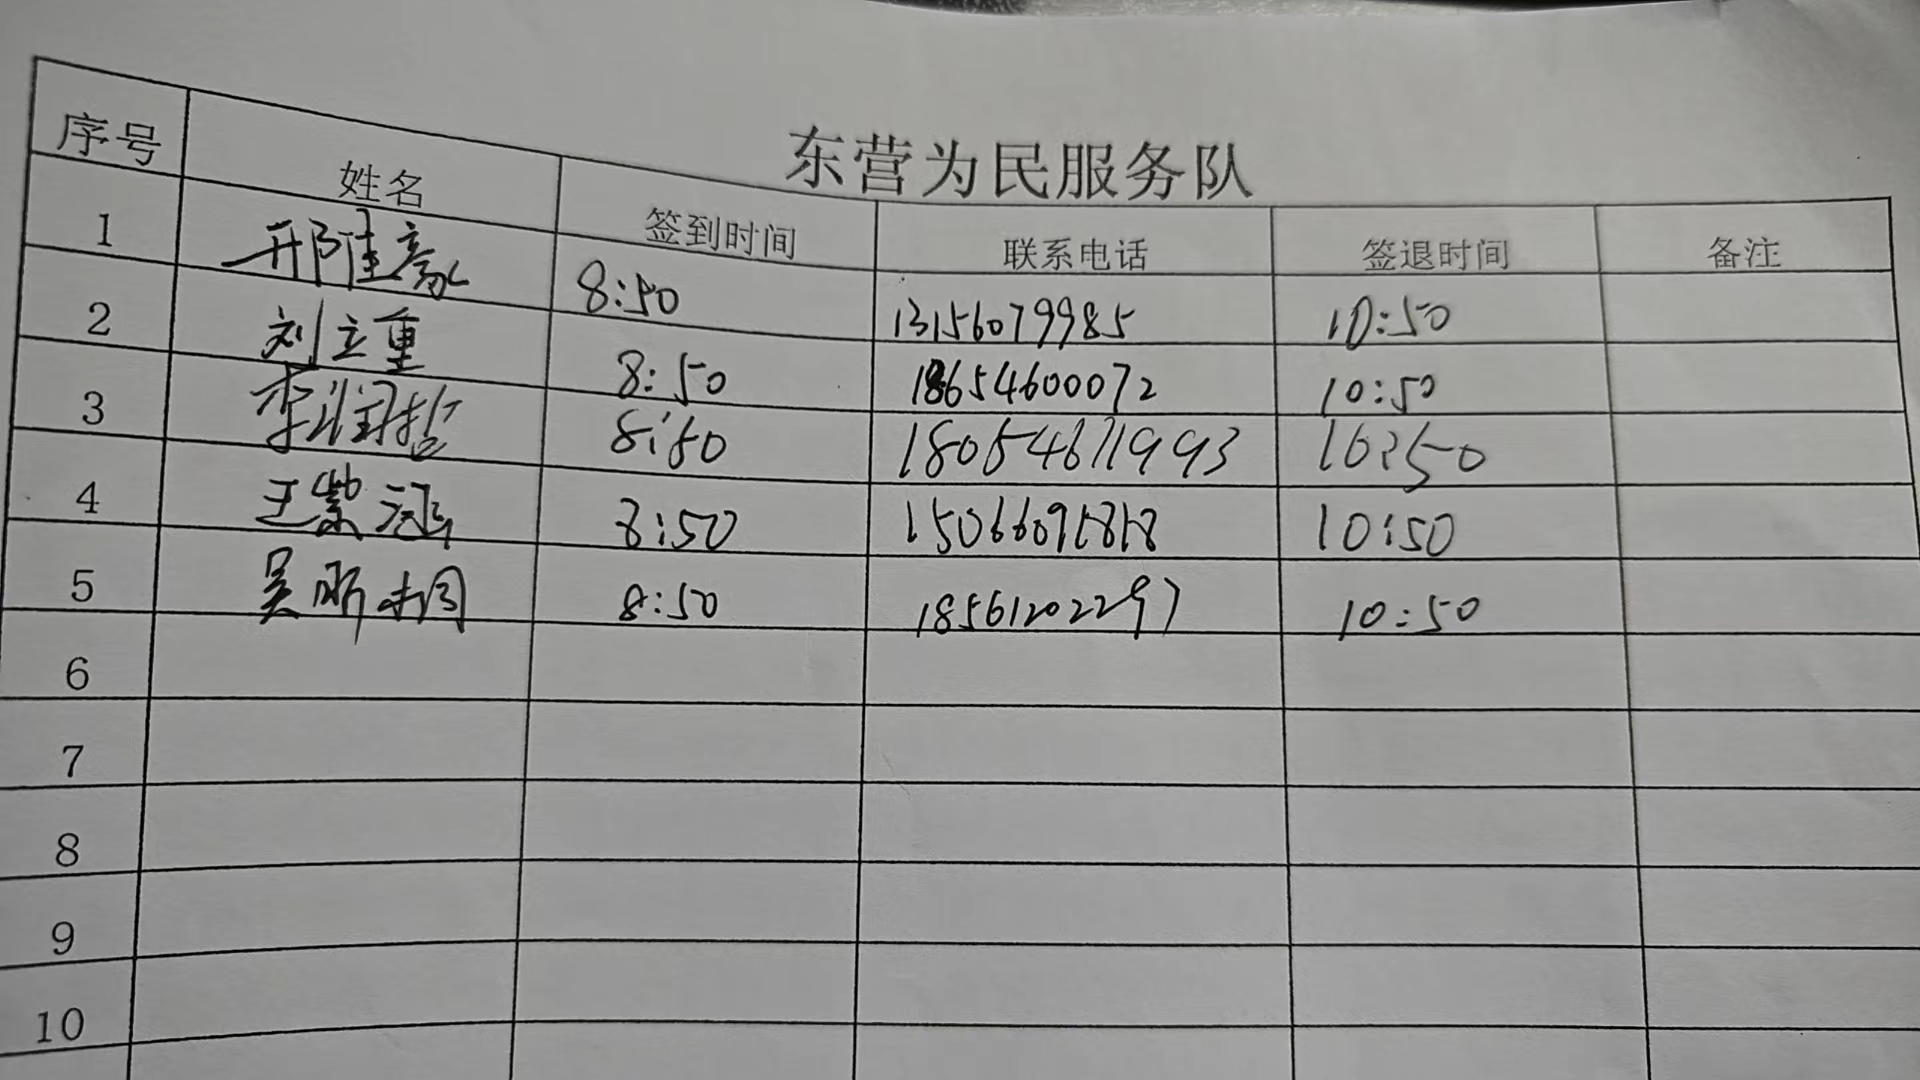 东营为民服务队
序号 姓名 签到时间 联系电话 签退时间 备注
1 邢佳豪 8:50 13156079985 10:50
2 刘立重 8:50 18654600072 10:50
3 李润哲 8:50 18054671993 10:50
4 王紫涵 8:50 15066091818 10:50
5 吴昕桐 8:50 18561202297 10:50
6
7
8
9
10